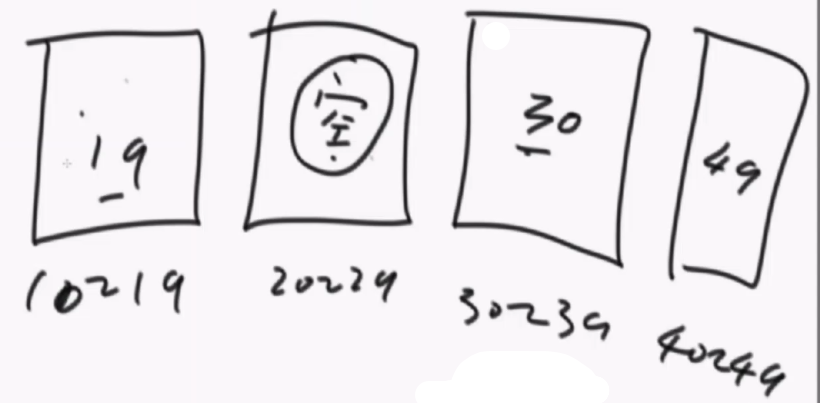 19
空
30
49
10~19
20~29
30~39
40~49